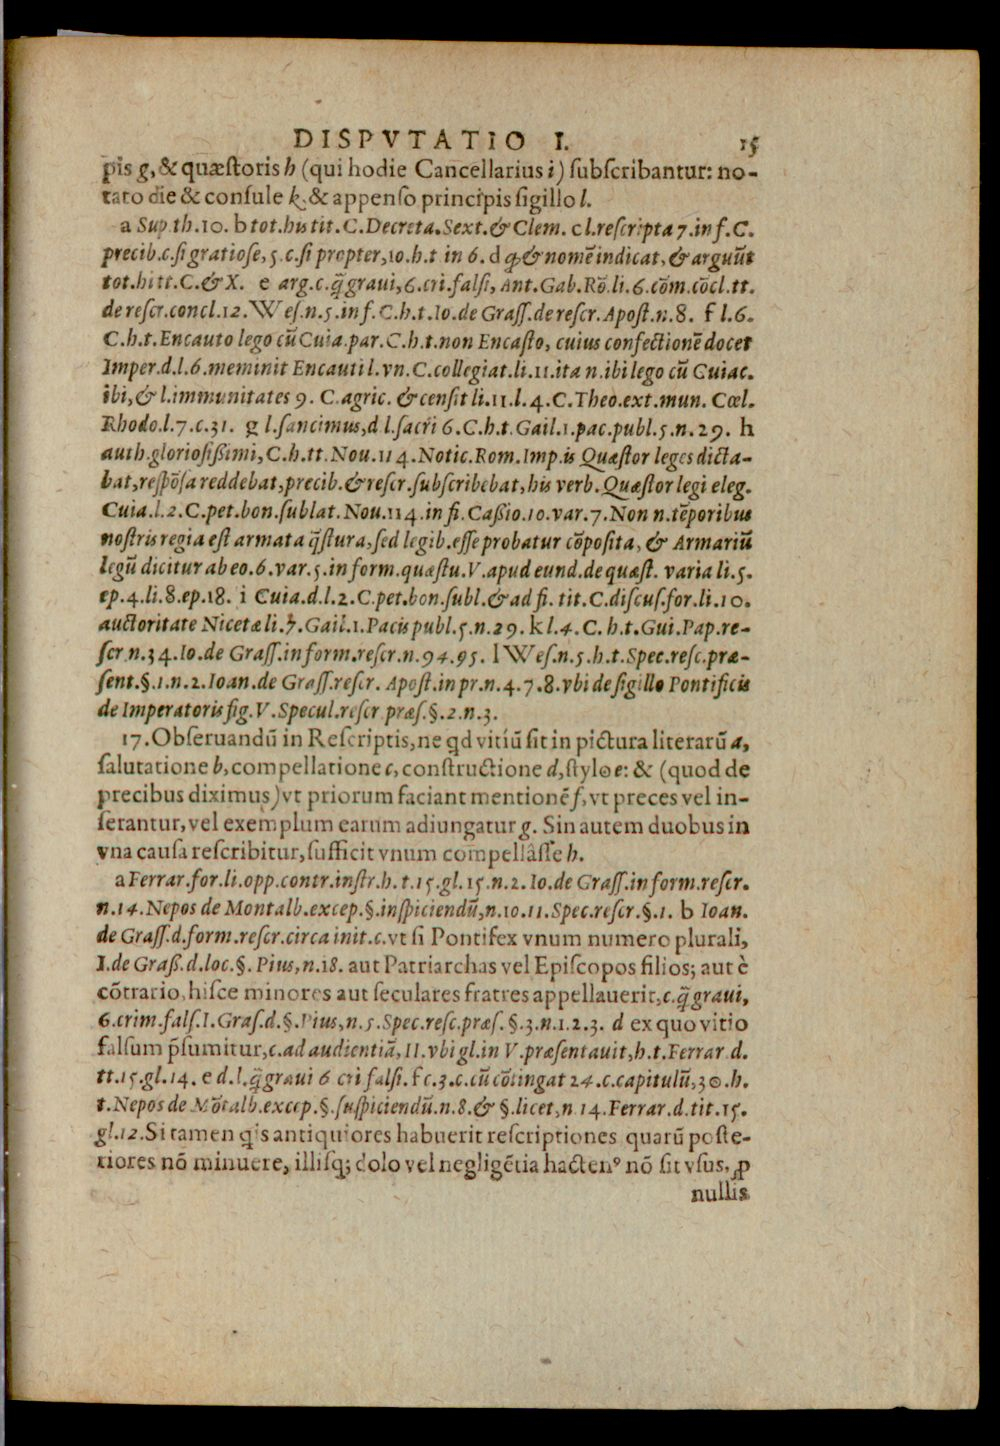 DISPVTATIO I. 15
pis g, & quæstoris h (qui hodie Cancellarius i) subscribantur: no-
tato die & consule k, & appenso principis sigillo l.
a Sup. th. 10. b tot. his tit. C. Decreta. Sext. & Clem. c l. rescripta 7. in f. C.
precib. c. si gratiose, 5. c. si propter, 10. h. t in 6. d & nomē indicat, & arguūt
tot. hi tt. C. & X. e arg. c. q̄ graui, 6. cri. falsi, Ant. Gab. Rō. li. 6. cōm. cōcl. tt.
de rescr. concl. 12. Wes. n. 5. in f. C. h. t. Io. de Grass. de rescr. Apost. n. 8. f l. 6.
C. h. t. Encauto lego cū Cuia. par. C. h. t. non Encasto, cuius confectionē docet
Imper. d. l. 6. meminit Encauti l. vn. C. collegiat. li. 11. ita n. ibi lego cū Cuiac.
ibi, & l. immunitates 9. C. agric. & censit li. 11. l. 4. C. Theo. ext. mun. Cœl.
Rhodo. l. 7. c. 31. g l. sancimus, d l. sacri 6. C. h. t. Gail. 1. pac. publ. 5. n. 29. h
auth. gloriosißimi, C. h. tt. Nou. 114. Notic. Rom. Imp. is Quæstor leges dicta-
bat, respōsa reddebat, precib. & rescr. subscribebat, his verb. Quæstor legi eleg.
Cuia. l. 2. C. pet. bon. sublat. Nou. 114. in fi. Caßio. 10. var. 7. Non n. tēporibus
nostris regia est armata q̄stura, sed legib. esse probatur cōposita, & Armariū
legū dicitur ab eo. 6. var. 5. in form. quæstu. V. apud eund. de quæst. varia li. 5.
ep. 4. li. 8. ep. 18. i Cuia. d. l. 2. C. pet. bon. subl. & ad fi. tit. C. discus. for. li. 10.
auctoritate Nicetæ li. 7. Gail. 1. Pacis publ. 5. n. 29. k l. 4. C. h. t. Gui. Pap. re-
scr. n. 34. Io. de Grass. in form. rescr. n. 94. 95. l Wes. n. 5. h. t. Spec. resc. præ-
sent. §. 1. n. 2. Ioan. de Grass. rescr. Apost. in pr. n. 4. 7. 8. vbi de sigillo Pontificis
de Imperatoris sig. V. Specul. rescr. præs. §. 2. n. 3.
17. Obseruandū in Rescriptis, ne qd vitiū sit in pictura literarū a,
salutatione b, compellatione c, constructione d, stylo e: & (quod de
precibus diximus) vt priorum faciant mentionē f, vt preces vel in-
serantur, vel exemplum earum adiungatur g. Sin autem duobus in
vna causa rescribitur, sufficit vnum compellâsse h.
a Ferrar. for. li. opp. contr. instr. h. t. 15. gl. 15. n. 2. Io. de Grass. in form. rescr.
n. 14. Nepos de Montalb. excep. §. inspiciendū, n. 10. 11. Spec. rescr. §. 1. b Ioan.
de Grass. d. form. rescr. circa init. c. vt si Pontifex vnum numero plurali,
I. de Graß. d. loc. §. Pius, n. 18. aut Patriarchas vel Episcopos filios; aut è
cōtrario, hisce minores aut seculares fratres appellauerit, c. q̄ graui,
6. crim. fals. I. Gras. d. §. Pius, n. 5. Spec. resc. præs. §. 3. n. 1. 2. 3. d ex quo vitio
falsum p̄sumitur, c. ad audientiā, 11. vbi gl. in V. præsentauit, h. t. Ferrar. d.
tt. 15. gl. 14. e d. l. q̄ graui 6 cri falsi. f c. 3. c. cū cōtingat 24. c. capitulū, 30. h.
t. Nepos de Mōtalb. excep. §. suspiciendū. n. 8. & §. licet, n 14. Ferrar. d. tit. 15.
gl. 12. Si tamen qis antiquiores habuerit rescriptiones quarū poste-
riores nō minuere, illisq; dolo vel negligētia hacten⁹ nō sit vsus, ꝓ
nullis